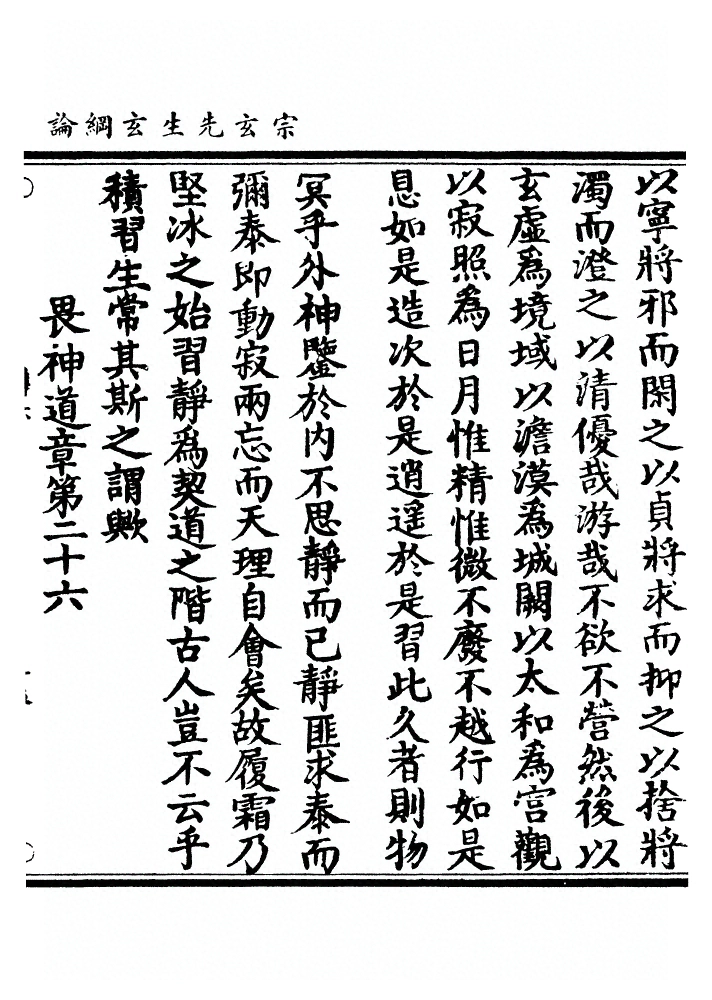 宗玄先生玄綱論
以寧將邪而閑之以貞將求而抑之以捨將
濁而澄之以清優哉游哉不欲不營然後以
玄虛為境域以澹漠為城闕以太和為宮觀
以寂照為日月惟精惟微不廢不越行如是
息如是造次於是逍遥於是習此久者則物
冥乎外神鑒於內不思靜而已靜匪求泰而
彌泰即動寂兩忘而天理自會矣故履霜乃
堅冰之始習靜為契道之階古人豈不云乎
積習生常其斯之謂歟
畏神道章第二十六